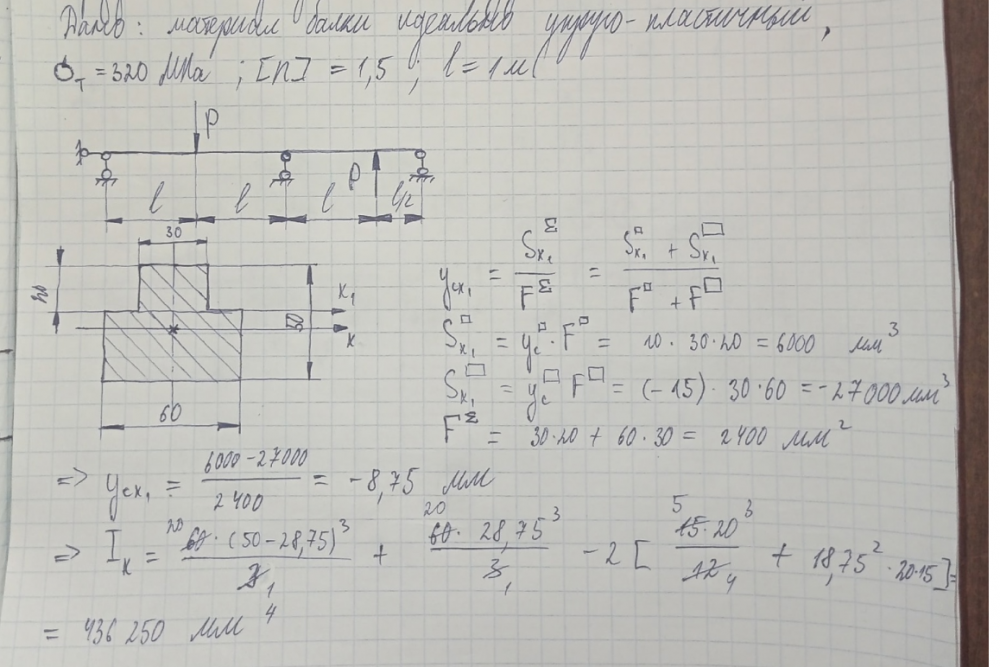 Дано: материал балки идеально упруго-пластичный,
σ_т = 320 МПа ; [n] = 1,5 ; l = 1м
P
P
l l l l/2
30
20
50
x₁
x
60
y_cx₁ = S_x₁^Σ / F^Σ = (S_x₁^□ + S_x₁^▭) / (F^□ + F^▭)
S_x₁^□ = y_c^□ · F^□ = 10 · 30 · 20 = 6000 мм³
S_x₁^▭ = y_c^▭ F^▭ = (-15) · 30 · 60 = -27000 мм³
F^Σ = 30·20 + 60·30 = 2400 мм²
=> y_cx₁ = (6000 - 27000) / 2400 = -8,75 мм
=> I_x = 20 60·(50-28,75)³ / 3 1 + 20 60·28,75³ / 3 1 - 2 [ 5 15·20³ / 12 4 + 18,75²·20·15 ] =
= 436 250 мм⁴